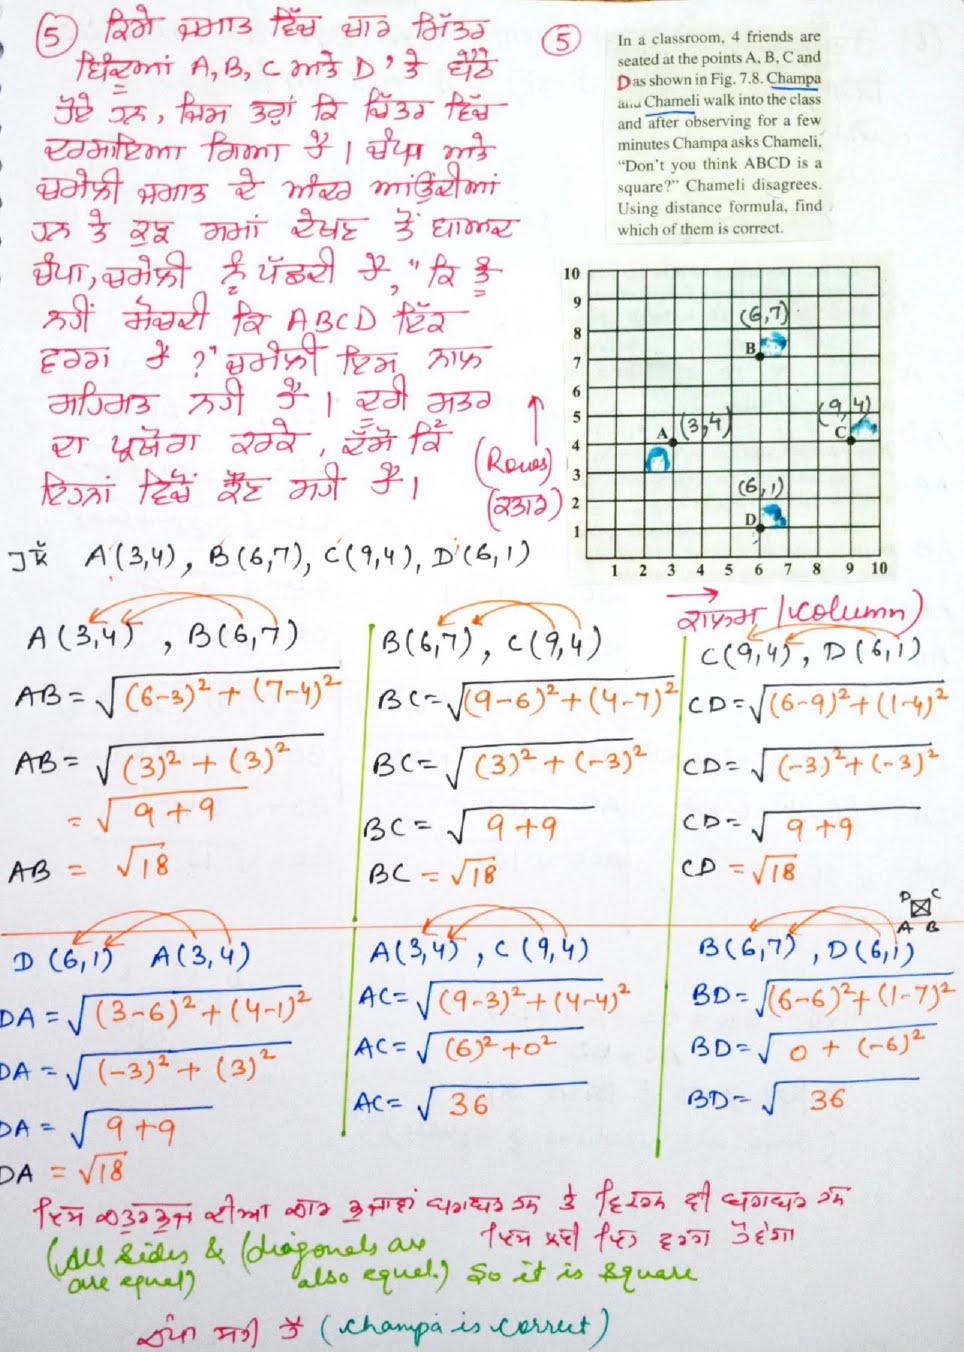 (5) ਕਿਸੇ ਜਮਾਤ ਵਿੱਚ ਚਾਰ ਮਿੱਤਰ
ਬਿੰਦੂਆਂ A, B, C ਅਤੇ D 'ਤੇ ਬੈਠੇ
ਹੋਏ ਹਨ, ਜਿਸ ਤਰ੍ਹਾਂ ਕਿ ਚਿੱਤਰ ਵਿੱਚ
ਦਰਸਾਇਆ ਗਿਆ ਹੈ। ਚੰਪਾ ਅਤੇ
ਚਮੇਲੀ ਜਮਾਤ ਦੇ ਅੰਦਰ ਆਂਉਂਦੀਆਂ
ਹਨ ਤੇ ਕੁਝ ਸਮਾਂ ਦੇਖਣ ਤੋਂ ਬਾਅਦ
ਚੰਪਾ, ਚਮੇਲੀ ਨੂੰ ਪੁੱਛਦੀ ਹੈ, "ਕਿ ਤੂੰ
ਨਹੀਂ ਸੋਚਦੀ ਕਿ ABCD ਇੱਕ
ਵਰਗ ਹੈ ?" ਚਮੇਲੀ ਇਸ ਨਾਲ
ਸਹਿਮਤ ਨਹੀ ਹੈ। ਦੂਰੀ ਸੂਤਰ
ਦਾ ਪ੍ਰਯੋਗ ਕਰਕੇ, ਦੱਸੋ ਕਿ
ਇਹਨਾਂ ਵਿੱਚੋਂ ਕੌਣ ਸਹੀ ਹੈ।
(5)
In a classroom, 4 friends are
seated at the points A, B, C and
D as shown in Fig. 7.8. Champa
and Chameli walk into the class
and after observing for a few
minutes Champa asks Chameli,
"Don't you think ABCD is a
square?" Chameli disagrees.
Using distance formula, find
which of them is correct.
10
9
8
7
6
5
4
3
2
1
(6,7)
B
A (3,4)
(9,4)
C
(6,1)
D
1 2 3 4 5 6 7 8 9 10
↑
(Rows)
(ਕਤਾਰ)
→
ਕਾਲਮ (column)
ਹੱਲ A(3,4), B(6,7), C(9,4), D(6,1)
A(3,4), B(6,7)
AB = √(6-3)² + (7-4)²
AB = √(3)² + (3)²
= √9+9
AB = √18
B(6,7), C(9,4)
BC = √(9-6)² + (4-7)²
BC = √(3)² + (-3)²
BC = √9+9
BC = √18
C(9,4), D(6,1)
CD = √(6-9)² + (1-4)²
CD = √(-3)² + (-3)²
CD = √9+9
CD = √18
D C
A B
D(6,1) A(3,4)
DA = √(3-6)² + (4-1)²
DA = √(-3)² + (3)²
DA = √9+9
DA = √18
A(3,4), C(9,4)
AC = √(9-3)² + (4-4)²
AC = √(6)² + 0²
AC = √36
B(6,7), D(6,1)
BD = √(6-6)² + (1-7)²
BD = √0 + (-6)²
BD = √36
ਇਸ ਚਤੁਰਭੁਜ ਦੀਆ ਚਾਰ ਭੁਜਾਵਾਂ ਬਰਾਬਰ ਹਨ ਤੇ ਵਿਕਰਨ ਵੀ ਬਰਾਬਰ ਹਨ
ਇਸ ਲਈ ਇਹ ਵਰਗ ਹੋਵੇਗਾ
(All sides & (diagonals are
are equal) also equal.) So it is square
ਚੰਪਾ ਸਹੀ ਹੈ (Champa is correct)